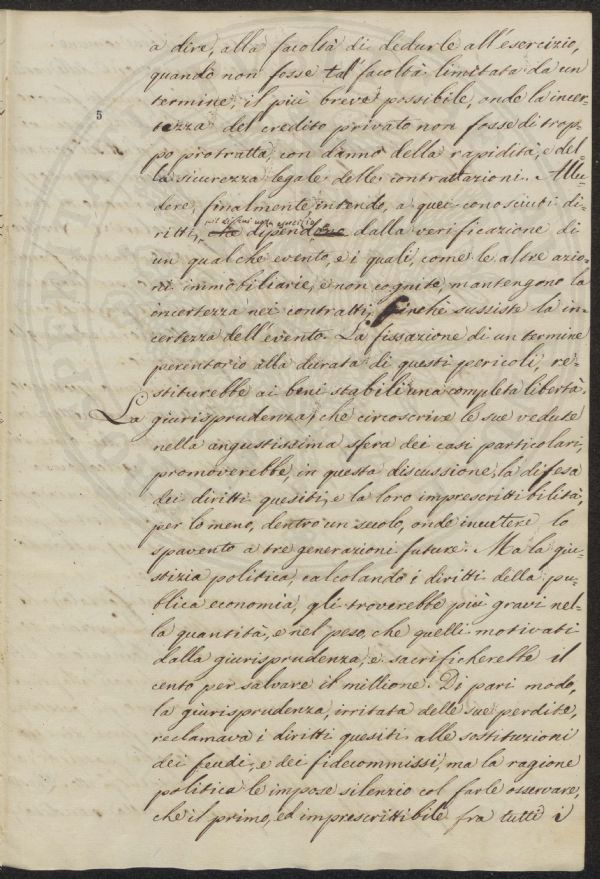 a dire, alla facoltà di dedurle all'esercizio,
quando non fosse tal facoltà limitata da un
termine, il più breve possibile, onde la incer-
5
tezza del credito privato non fosse di trop-
po protratta, con danno della rapidità, e del-
la sicurezza legale delle contrattazioni. Allu-
dere, finalmente, intendo, a quei conosciuti di-
ritti, che dipendono dalla verificazione di
un qualche evento, e i quali, come le altre azio-
ni immobiliarie, e non cognite, mantengono la
incertezza nei contratti, finchè sussiste la in-
certezza dell'evento. La fissazione di un termine
perentorio alla durata di questi pericoli, re-
stituirebbe ai beni stabili una completa libertà.
La giurisprudenza, che circoscrive le sue vedute
nella angustissima sfera dei casi particolari,
promoverebbe, in questa discussione, la difesa
dei diritti quesiti, e la loro imprescrittibilità,
per lo meno, dentro un secolo, onde incutere lo
spavento a tre generazioni future. Ma la giu-
stizia politica, calcolando i diritti della pu-
blica economia, gli troverebbe più gravi nel-
la quantità, e nel peso, che quelli motivati
dalla giurisprudenza, e sacrificherebbe il
cento per salvare il millione. Di pari modo,
la giurisprudenza, irritata delle sue perdite,
reclamava i diritti quesiti alle sostituzioni
dei feudi, e dei fidecommissi, ma la ragione
politica le impose silenzio col farle osservare,
che il primo, ed imprescrittibile fra tutti i